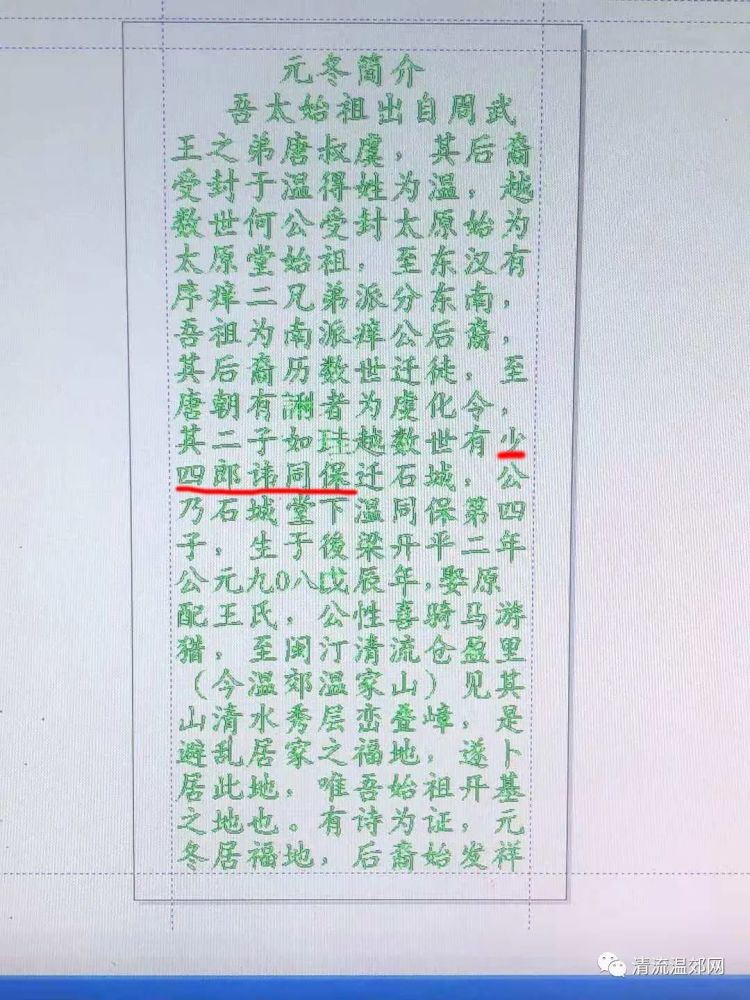 元冬简介
吾太始祖出自周武
王之弟唐叔虞，其后裔
受封于温得姓为温，越
数世何公受封太原始为
太原堂始祖，至东汉有
序痒二兄弟派分东南，
吾祖为南派痒公后裔，
其后裔历数世迁徒，至
唐朝有誗者为虔化令，
其二子如珪越数世有少
四郎讳同保迁石城，公
乃石城堂下温同保第四
子，生于後梁开平二年
公元九0八戊辰年，娶原
配王氏，公性喜骑马游
猎，至闽汀清流仓盈里
（今温郊温家山）见其
山清水秀层峦叠嶂，是
避乱居家之福地，遂卜
居此地，唯吾始祖开基
之地也。有诗为证，元
冬居福地，后裔始发祥
清流温郊网